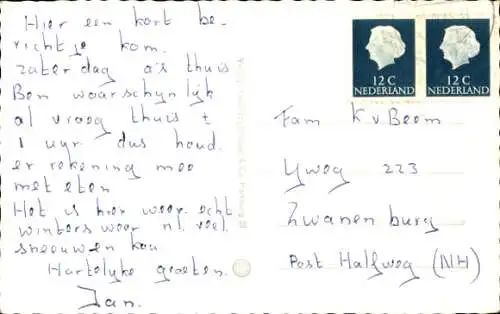 Hier een kort be-
richtje kom.
zaterdag a's thuis
Ben waarschijnlijk
al vroeg thuis ±
1 uur dus houd.
er rekening mee
met eten
Het is hier weer echt
winters weer nl. veel
sneeuw en kou
Hartelijke groeten.
Jan.
12 C
NEDERLAND
12 C
NEDERLAND
Fam K v Beem
Yweg 223
Zwanenburg
Post Halfweg (NH)